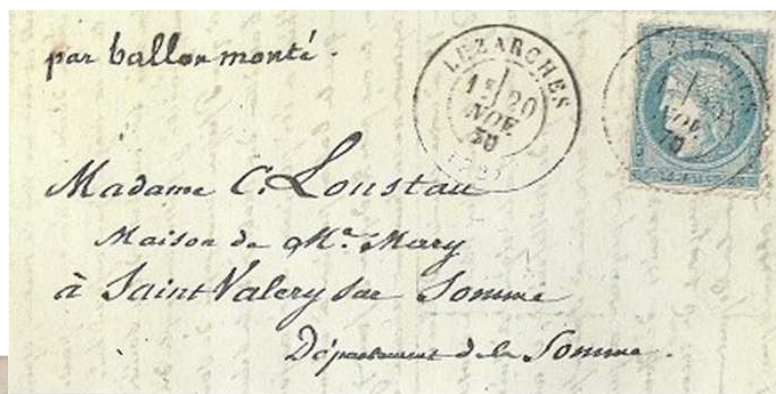 par ballon monté.
LUZARCHES
1E/20
NOV.
70
Madame C. Loustau
Maison de Mr. Mary
à Saint Valery sur Somme
Département de la Somme.